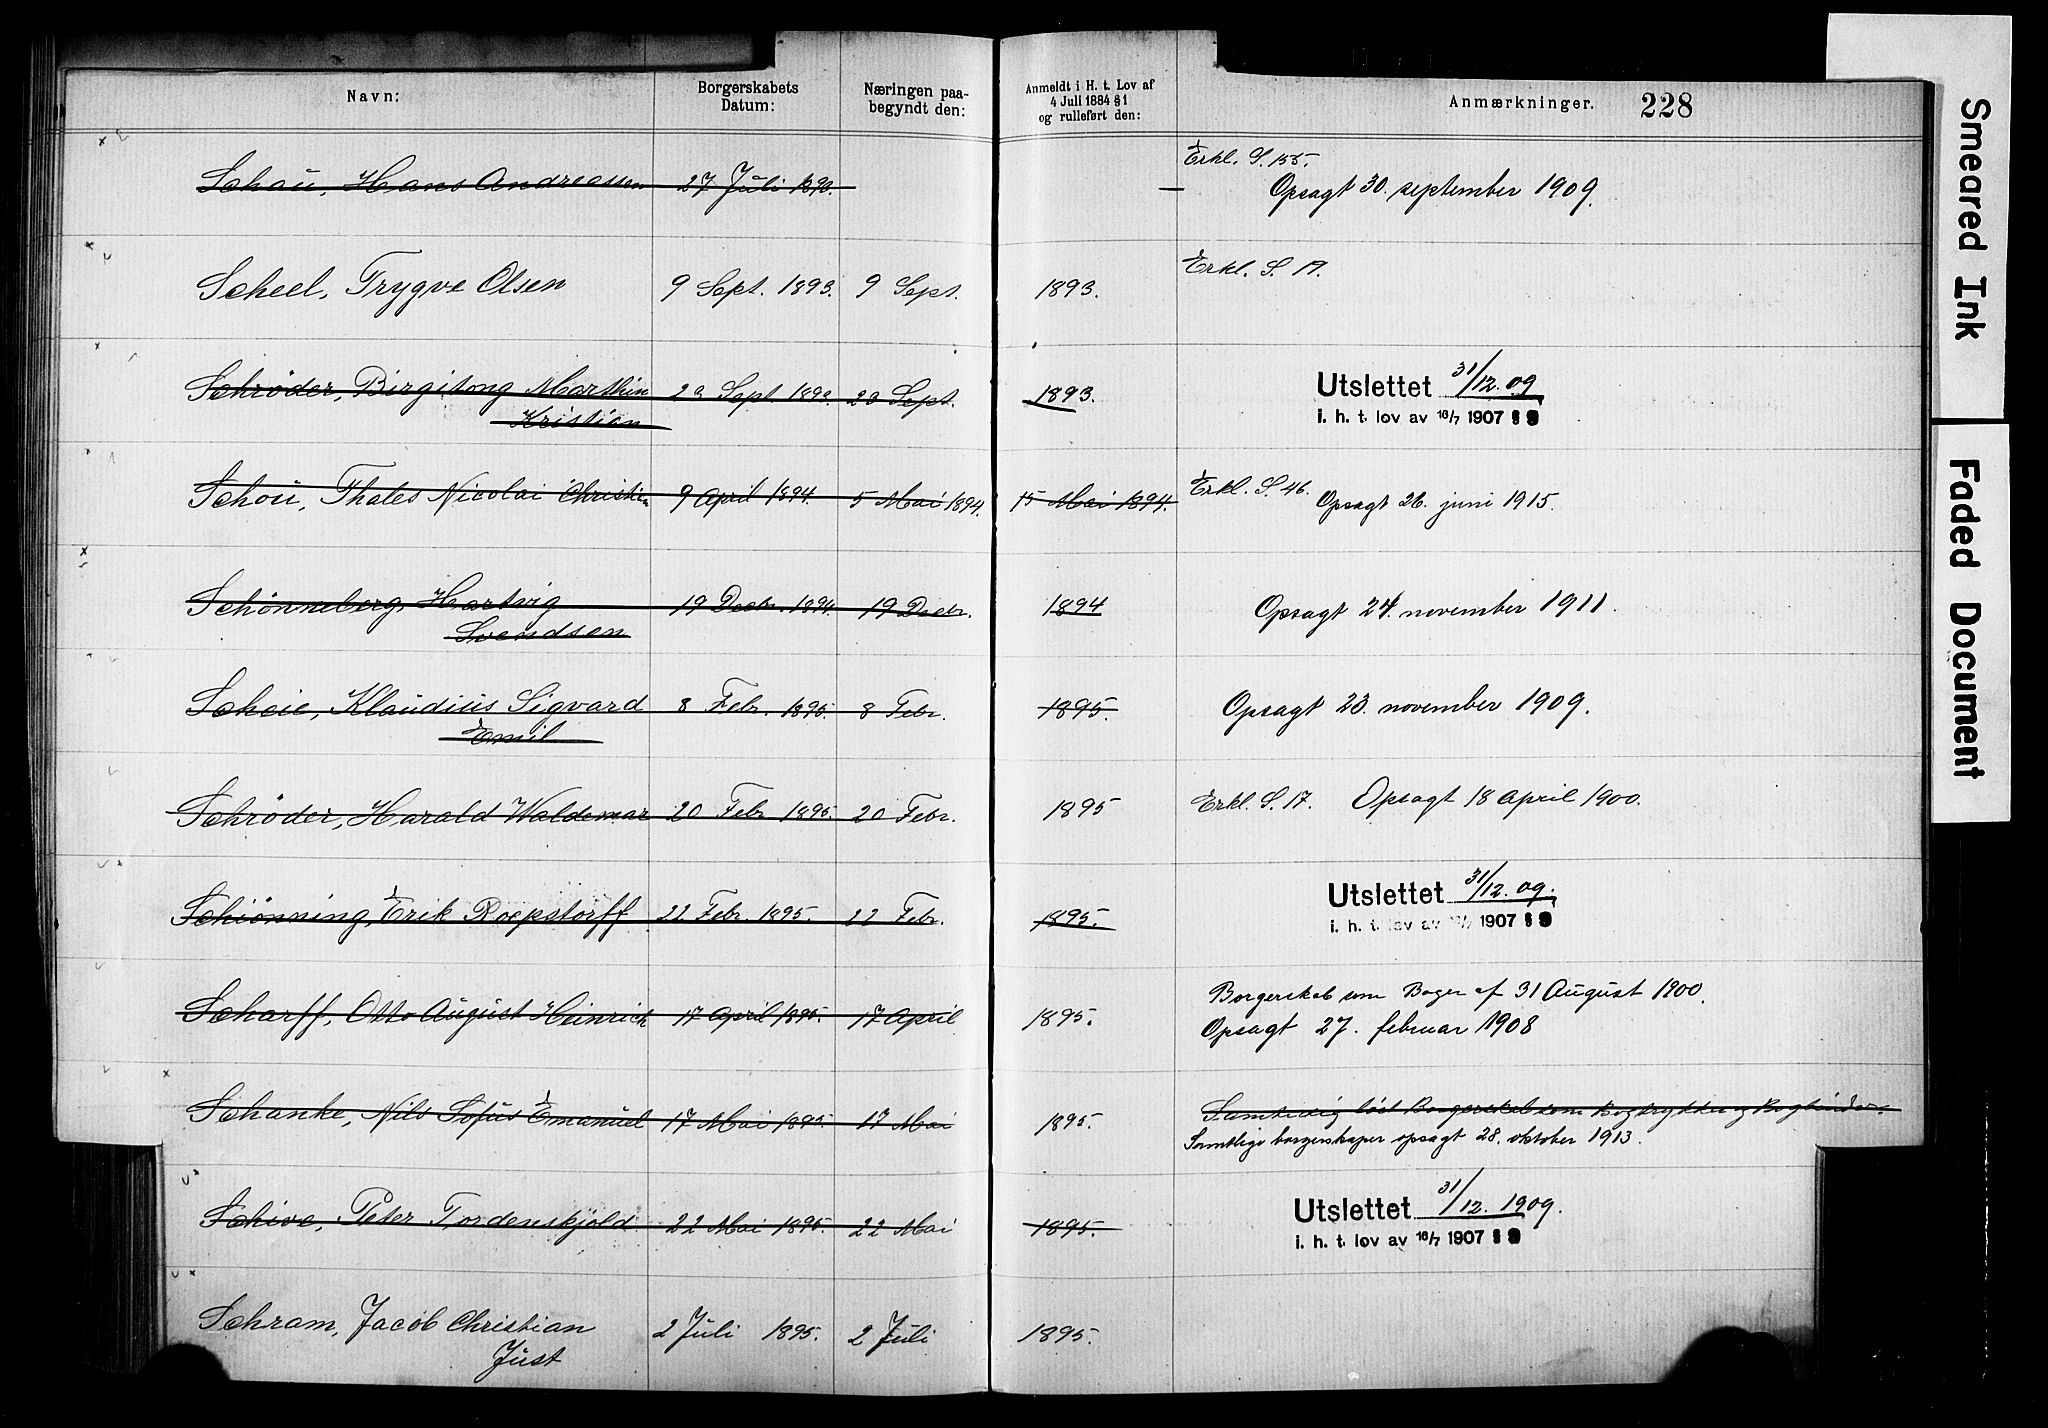 Navn:
Borgerskabets
Datum:
Næringen paa-
begyndt den:
Anmeldt i H. t. Lov af
4 Juli 1884 § 1
og rulleført den:
Anmærkninger.
228
Erkl. S. 155.
Schou, Hans Andreassen 27 Juli 1893. — Opsagt 30. september 1909.
Erkl. S. 19.
Scheel, Trygve Olsen 9 Sept. 1893. 9 Sept. 1893.
Schrøder, Birgitong Marthin 23 Sept. 1893. 23 Sept. 1893. Utslettet 31/12.09
Kristian i. h. t. lov av 16/7 1907 §
Schou, Thales Nicolai Christian 9 April 1894. 5 Mai 1894. 15 Mai 1894. Erkl. S. 46. Opsagt 26. juni 1915.
Schønneberg, Hartvig 19 Decbr. 1894. 19 Decbr. 1894 Opsagt 24. november 1911.
Svendsen
Scheie, Klaudius Sigvard 8 Febr. 1895. 8 Febr. 1895. Opsagt 23. november 1909.
Emil
Schrøder, Harald Waldemar 20 Febr. 1895. 20 Febr. 1895 Erkl. S. 17. Opsagt 18 April 1900.
Schiønning, Erik Roepstorff 22 Febr. 1895. 22 Febr. 1895. Utslettet 31/12.09.
i. h. t. lov av 16/7 1907 §
Borgerskab som Bager af 31 August 1900.
Scharff, Otto August Heinrich 17 April 1895. 17 April 1895. Opsagt 27. februar 1908
Schanke, Nils Sofus Emanuel 17 Mai 1895. 17 Mai 1895. Samtidig løst Borgerskab som Bogtrykker og Bogbinder.
Samtlige borgerskaper opsagt 28. oktober 1913.
Schive, Peter Tordenskjold 22 Mai 1895. 22 Mai 1895. Utslettet 31/12.1909.
i. h. t. lov av 16/7 1907 §
Schram, Jacob Christian 2 Juli 1895. 2 Juli 1895.
Just
Smeared Ink
Faded Document